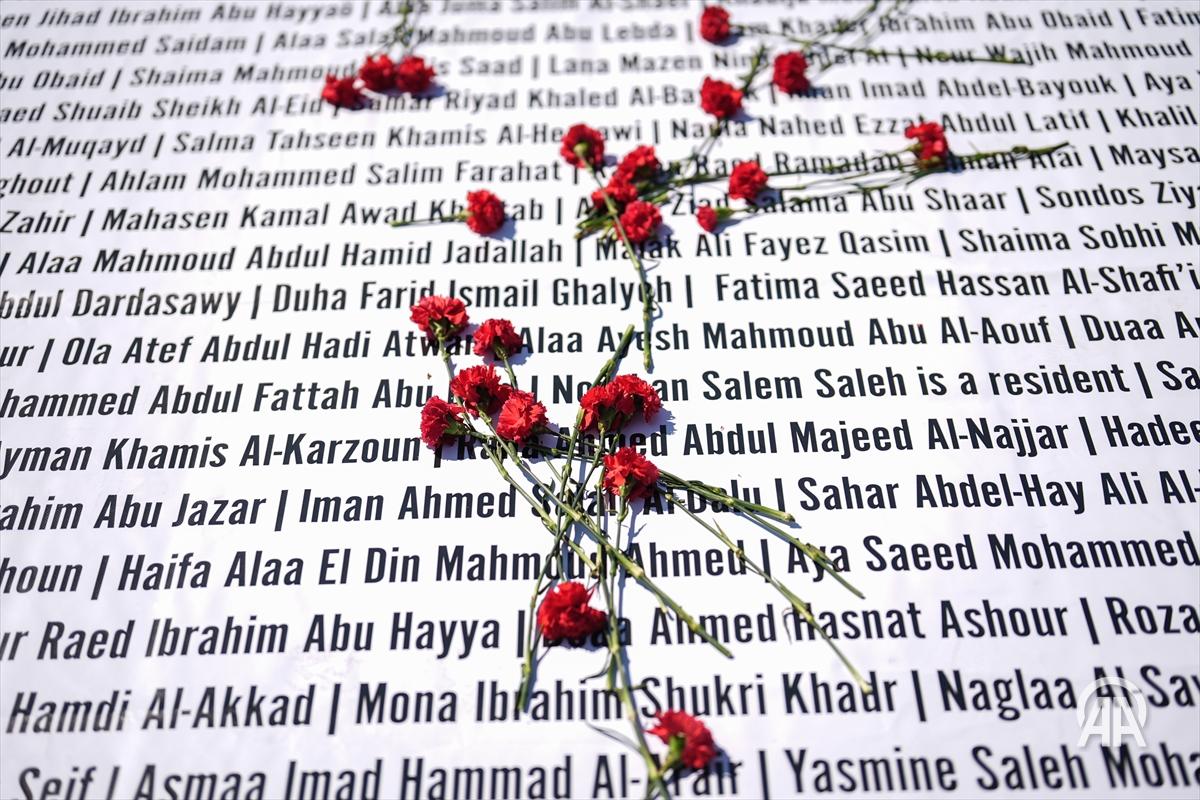 Jihad Ibrahim Abu Hayya
Mohammed Saidam | Alaa Mahmoud Abu Lebda | Khader Ibrahim Abu Obaid |
Obaid | Shaima Mahmoud Saad | Lana Mazen | Nour Wajih Mahmoud
Shuaib Sheikh Al-Eid | Samar Riyad Khaled Imad Abdel-Bayouk | Aya
Al-Muqayd | Salma Tahseen Khamis | Nahed Ezzat Abdul Latif | Khalil
ghout | Ahlam Mohammed Salim Farahat | Raed Ramadan Alai | Maysa
Zahir | Mahasen Kamal Awad | Salama Abu Shaar | Sondos Ziy
| Alaa Mahmoud Abdul Hamid Jadallah | Malak Ali Fayez Qasim | Shaima Sobhi M
bdul Dardasawy | Duha Farid Ismail Ghalyeh | Fatima Saeed Hassan Al-Shafi'i
ur | Ola Atef Abdul Hadi | Alaa Ayesh Mahmoud Abu Al-Aouf | Duaa A
hammed Abdul Fattah Abu | Salem Saleh is a resident | Sa
yman Khamis Al-Karzoun | Ahmed Abdul Majeed Al-Najjar | Hadee
ahim Abu Jazar | Iman Ahmed | Sahar Abdel-Hay Ali Al-
houn | Haifa Alaa El Din Mahmoud Ahmed | Aya Saeed Mohammed
ur Raed Ibrahim Abu Hayya | Ahmed Hasnat Ashour | Roza
Hamdi Al-Akkad | Mona Ibrahim Shukri Khadr | Naglaa Al-Sa
Seif | Asmaa Imad Hammad | Yasmine Saleh Moha
AA